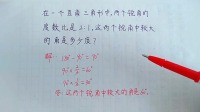 在一个直角三角形中,两个锐角的
度数比是2:1,这两个锐角中较大
的角是多少度?
解: 180°-90°=90°
答:这两个锐角中较大的角是60°.